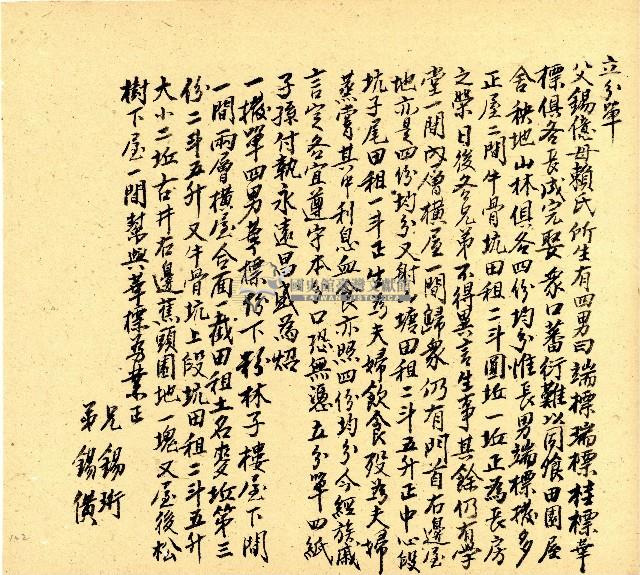 立分單
父錫億母賴氏所生有四男曰端標瑞標桂標華
標俱各長成完娶眾口蕃衍難以同飧田園屋
舍秧地山林俱各四份均分惟長男端標撥多
正屋二間牛骨坑田租二斗圓坵一坵正為長房
之業日後各兄弟不得異言生事其餘仍有學
堂一間內層橫屋一間歸眾仍有門首右邊屋
地亦是四份均分又 塘田租二斗五升正中心段
坑子尾田租一斗正生為夫婦飲食歿為夫婦
蒸嘗其中利息血 亦照四份均分今經族戚
言定各宜遵守本 口恐無憑立分單四紙
子孫付執永遠昌盛為炤
一撥單四男華標 下 林子樓屋下間
一間兩層橫屋合面截田租土名 坵第三
份二斗五升又牛骨坑上段坑田租二斗五升
大小二坵古井右邊蕉頭園地一塊又屋後松
樹下屋一間幫與華標為業正
兄錫珩
弟錫儥
國史館臺灣文獻館
142